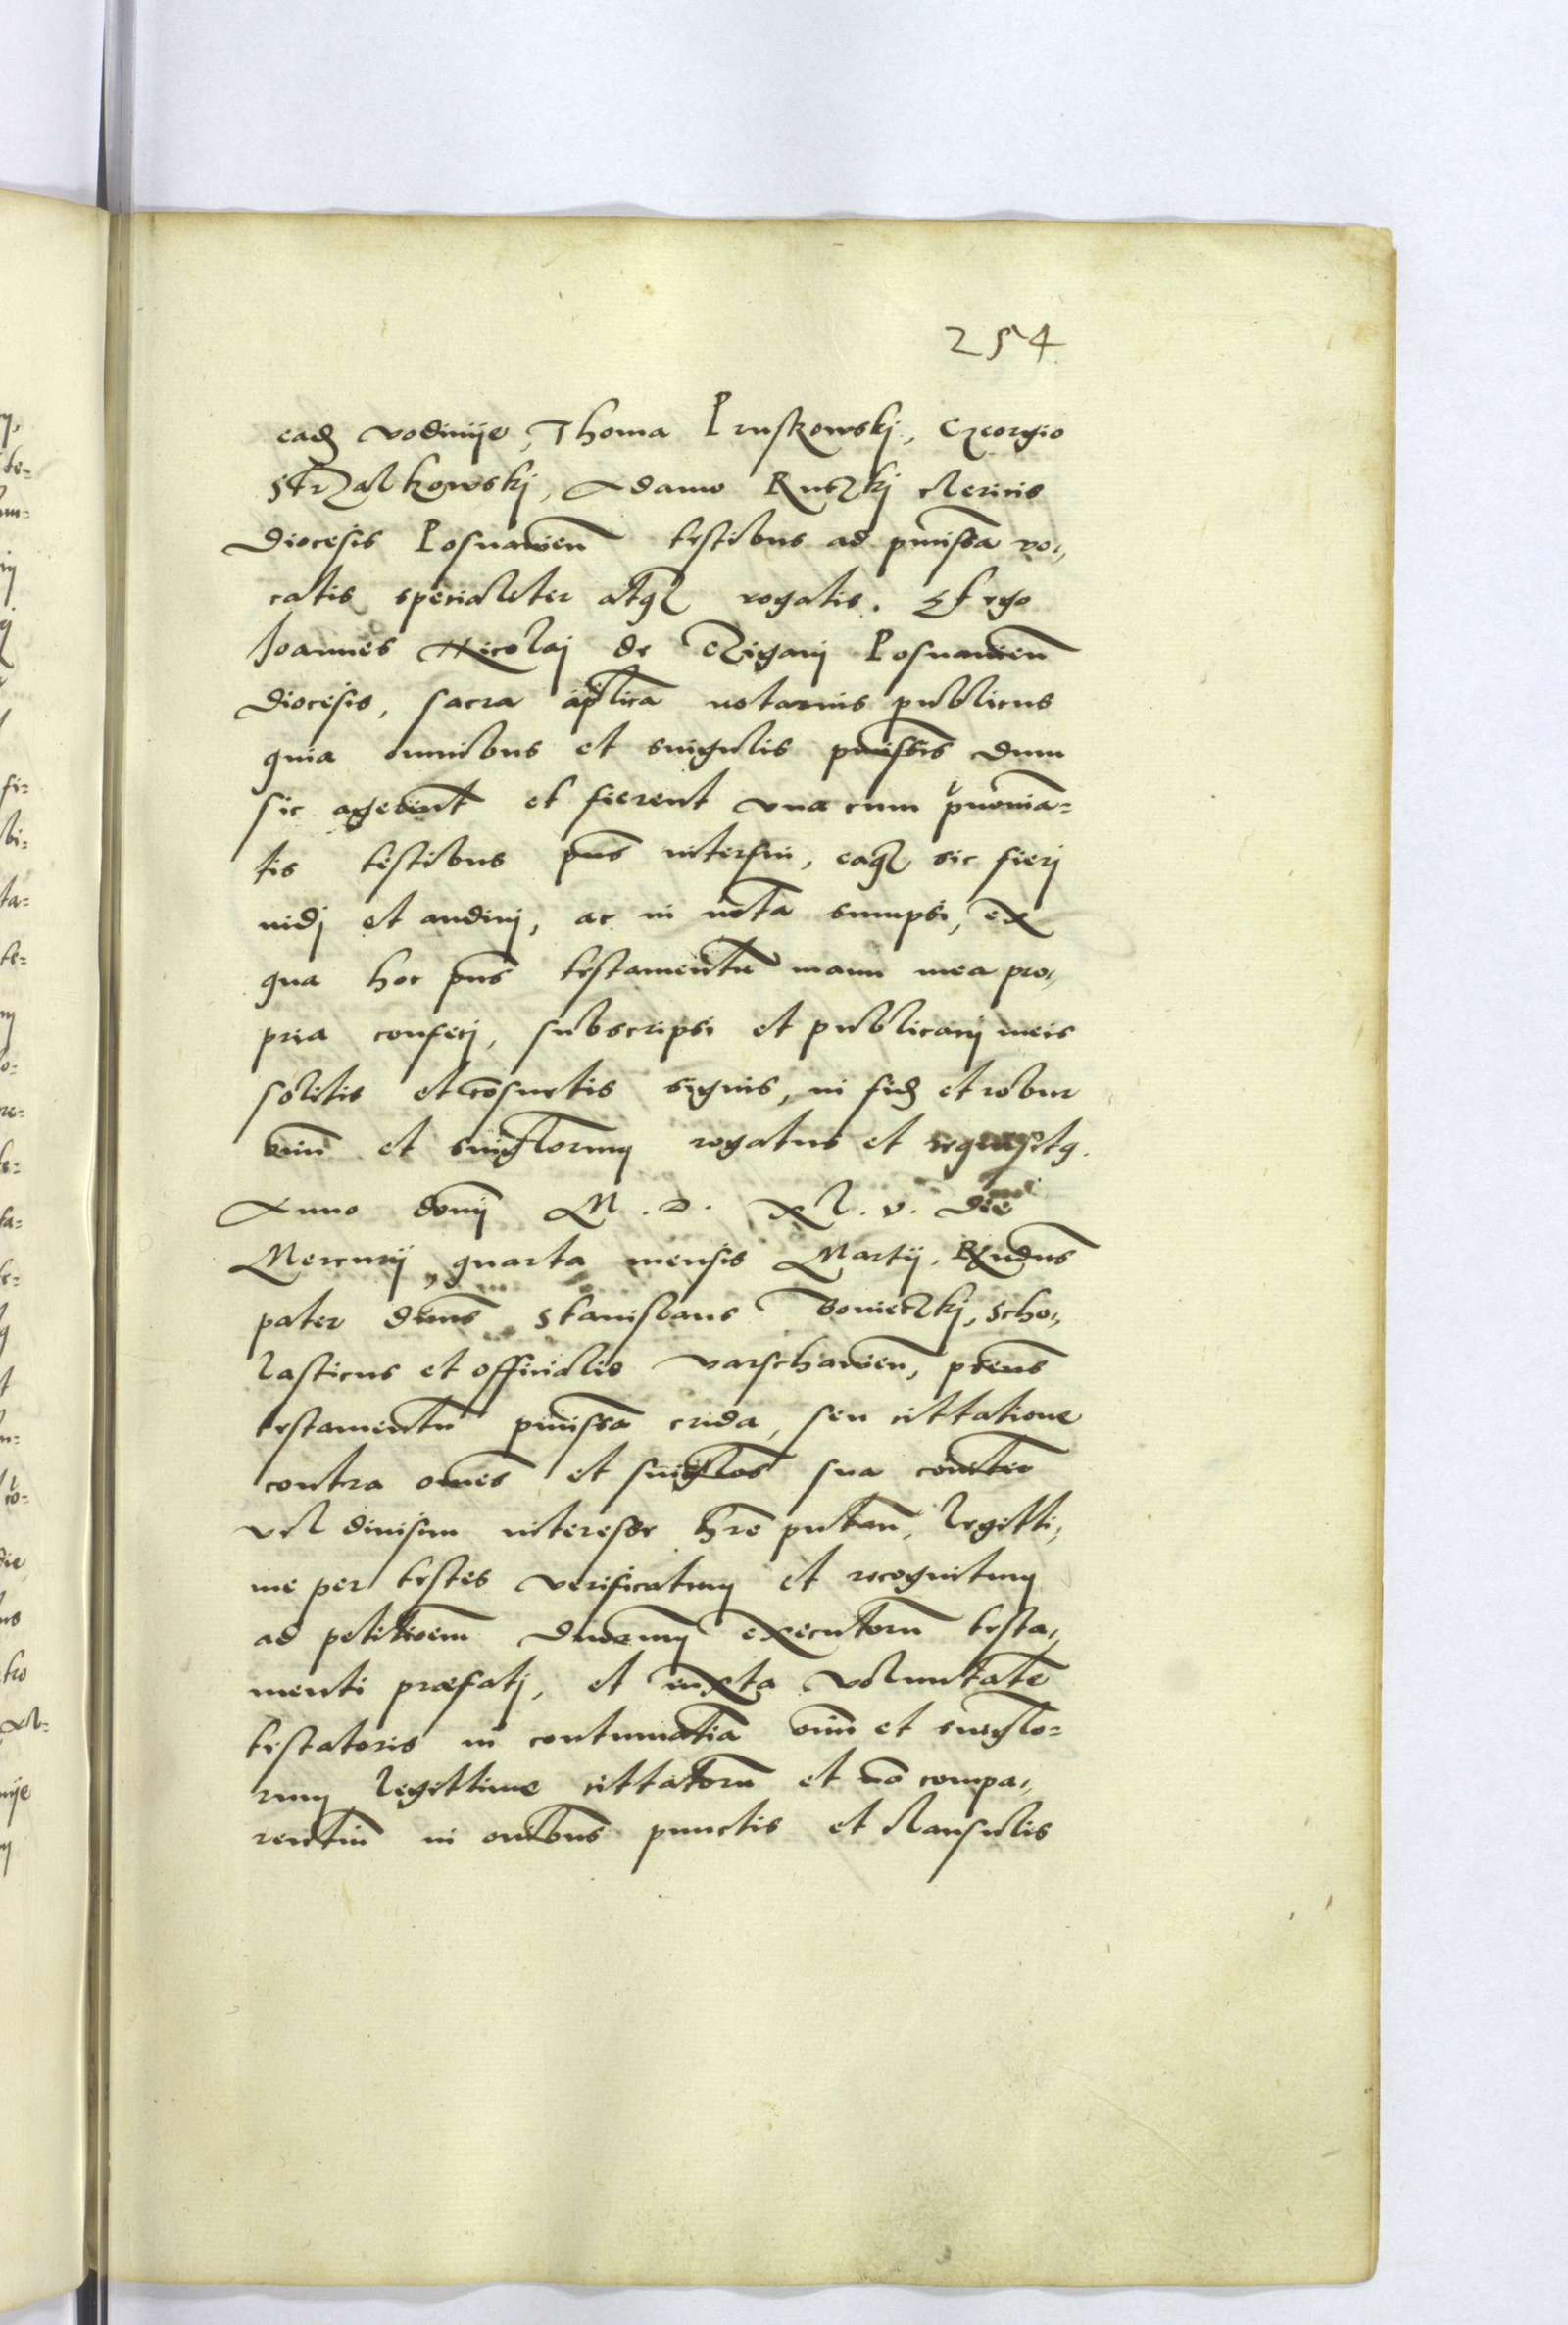 254
eadẽ vodinije, Thoma Pruskowskj, Georgio
Strzalkowskj, Adamo Ruczkj clericis
diocesis Posnanien̄ testibus ad p̄missa vo„
catis specialiter atqꝫ rogatis. Et ego
Joannes Nicolaj de Czigani Posnanien̄
diocesis, sacra ap̄lica notarius publicus
quia omnibus et singulis p̄missis dum
sic agerent̄ et fierent vna cum p̄no͞ina=
tis testibus p̄ns interfui, eaqꝫ sic fierj
uidj et audiuj, ac in nota̅ sumpsi, ex
qua hoc p̄ns testamentū manu mea pro„
pria confecj, subscripsi et publicauj meis
solitis et cōsuetis signis, in fidẽ et robur
oīum et singlorum rogatus et requisitꝰ.
Anno domī M. D. XL. v. die
Mercurij quarta mensis Martij. Rx̄ndus
pater dn̄us Stanislaus Bovieczkj, scho„
lasticus et officialis Varschavien̄, p̄sens
testamentū p̄missa crida, seu cittatione
contra om̄es et singlos sua com̄iter
vel diuisim interesse h̄re putan̄, legitti„
me per testes verificatum et recognitum
ad petitioem̄ dn̄orum executorū testa„
menti praefatj, et iuxta voluntatē
testatoris in contumatia̅ oīm et singlo=
rum legittime cittatorū et nō compa„
rentiū in om̄ibus punctis et clausulis